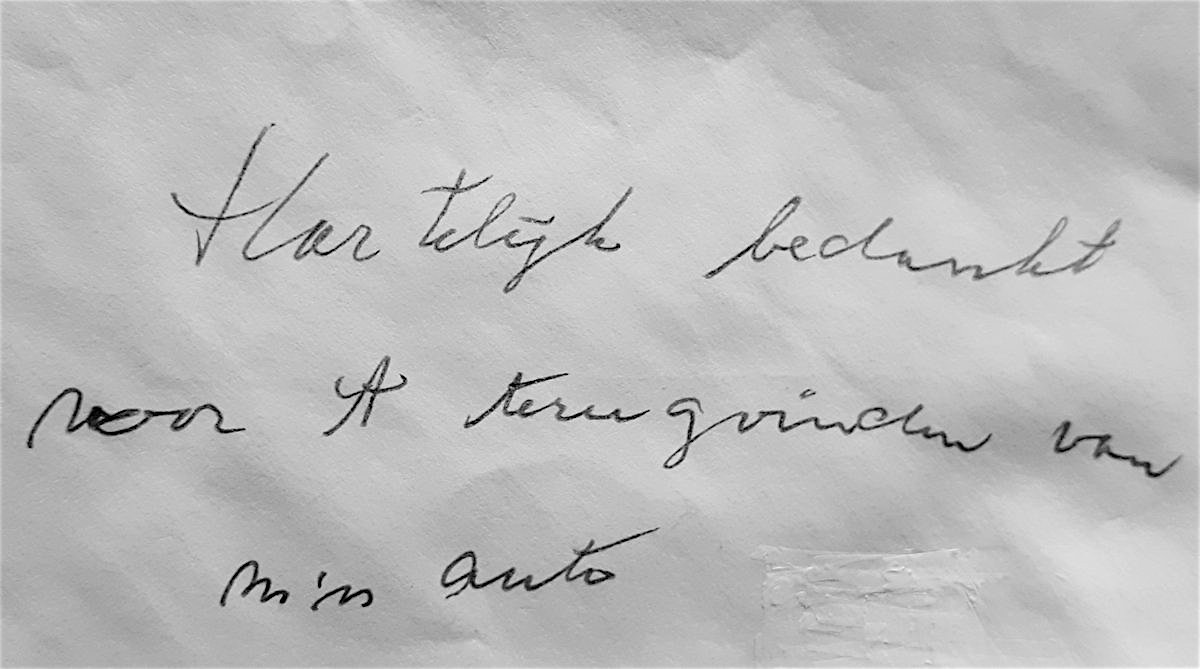 Hartelijk bedankt
voor 't terugvinden van
mijn auto